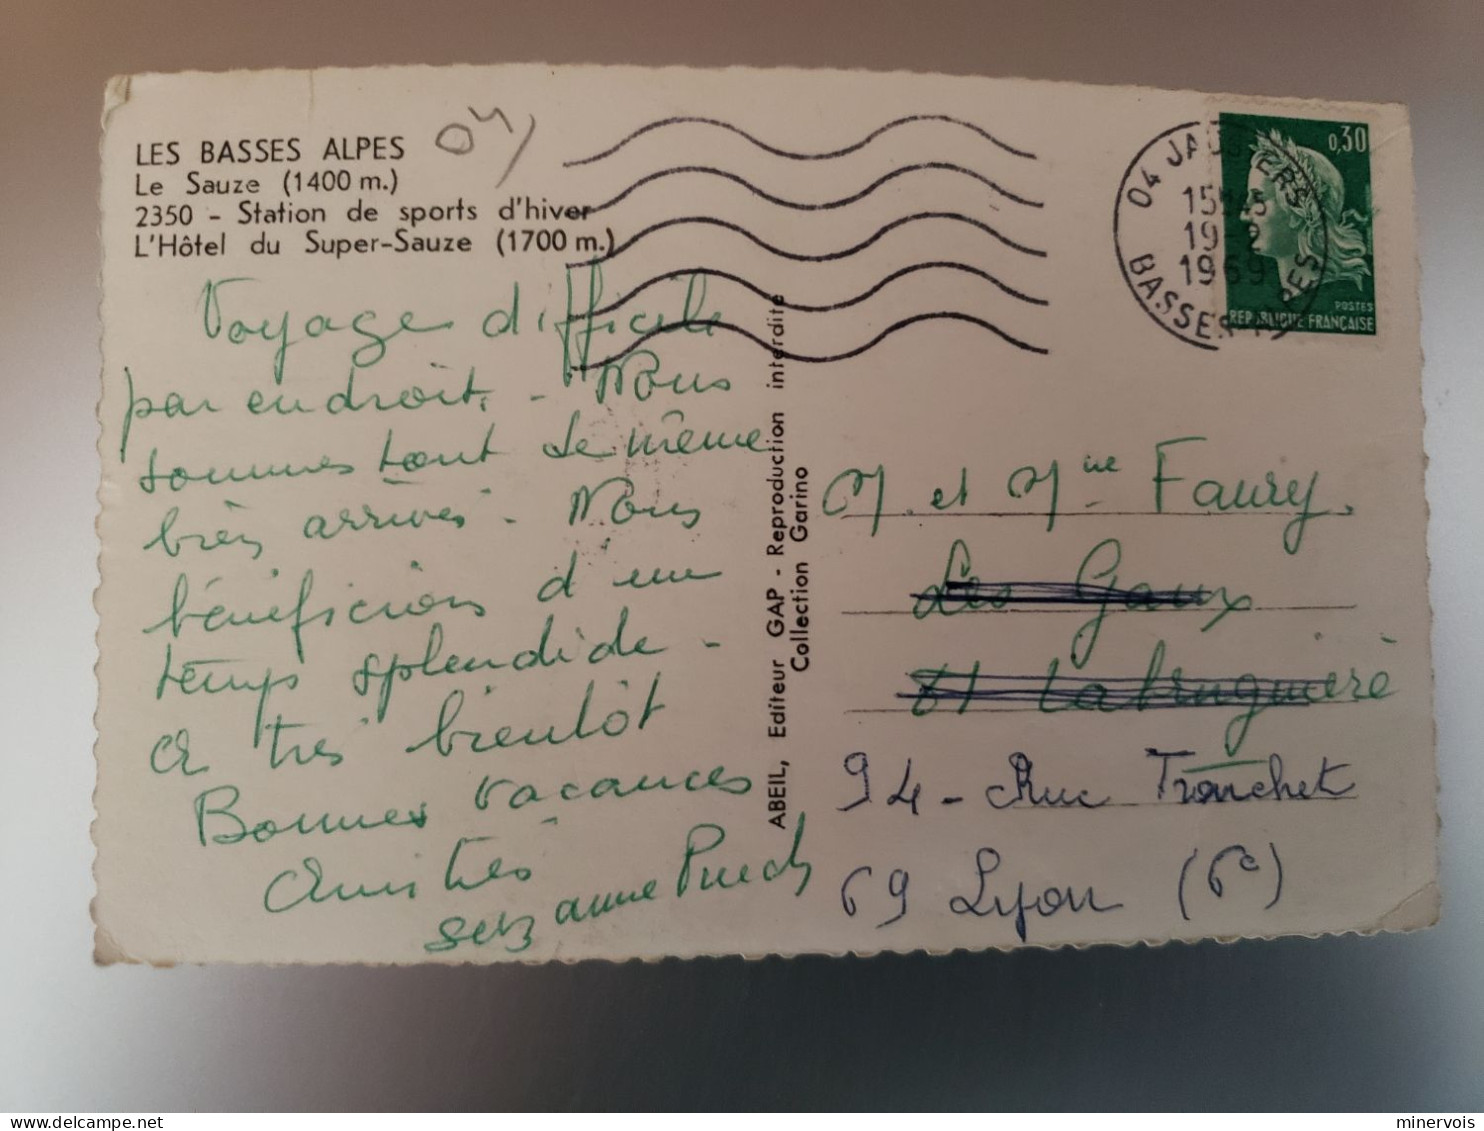 LES BASSES ALPES
Le Sauze (1400 m.)
2350 - Station de sports d'hiver
L'Hôtel du Super-Sauze (1700 m.)
04
Voyage difficile
par endroit. - Nous
sommes tout de même
bien arrivés - Nous
bénéficions d'un
temps splendide -
A très bientôt
Bonnes vacances
Amitiés
Suzanne Puech
ABEIL, Editeur GAP - Reproduction interdite
Collection Garino
0,30
POSTES
REPUBLIQUE FRANÇAISE
04 JAUSIERS
15H15
19-2
1969
BASSES ALPES
M. et Mme Faury.
Les Gaux
81 Labruguière
94 - Rue Tronchet
69 Lyon (6e)
minervois